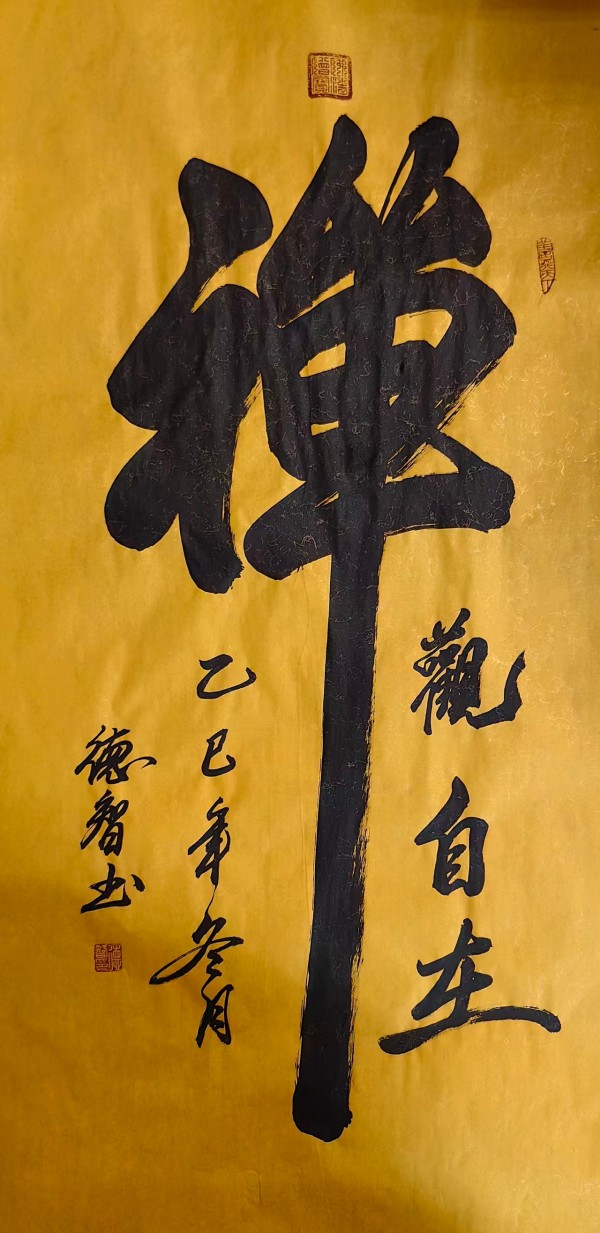 禪
觀自在
乙巳年冬月
德智书